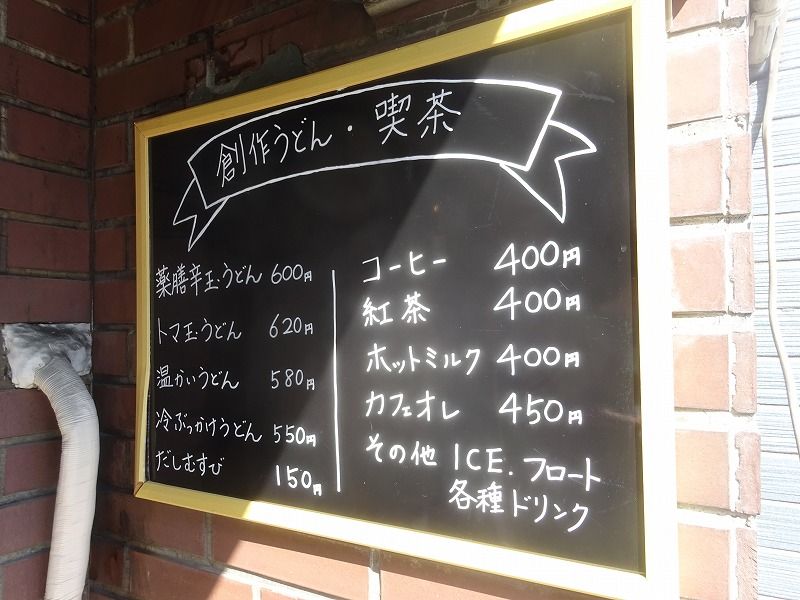 創作うどん・喫茶
薬膳辛玉うどん 600円
トマ玉うどん 620円
温かいうどん 580円
冷ぶっかけうどん 550円
だしむすび 150円
コーヒー 400円
紅茶 400円
ホットミルク 400円
カフェオレ 450円
その他 ICE. フロート
各種ドリンク